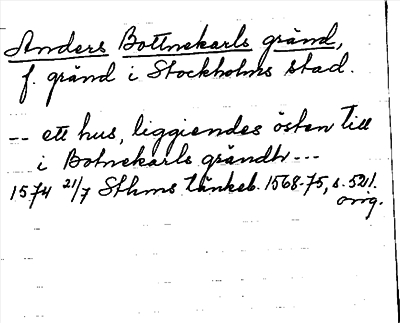 Anders Bottnekarls gränd,
f. gränd i Stockholms stad.
-- ett hus, liggiendes östen till
i Botnekarls grändh ---
1574 21/7 Sthms tänkeb. 1568-75, s. 521.
orig.